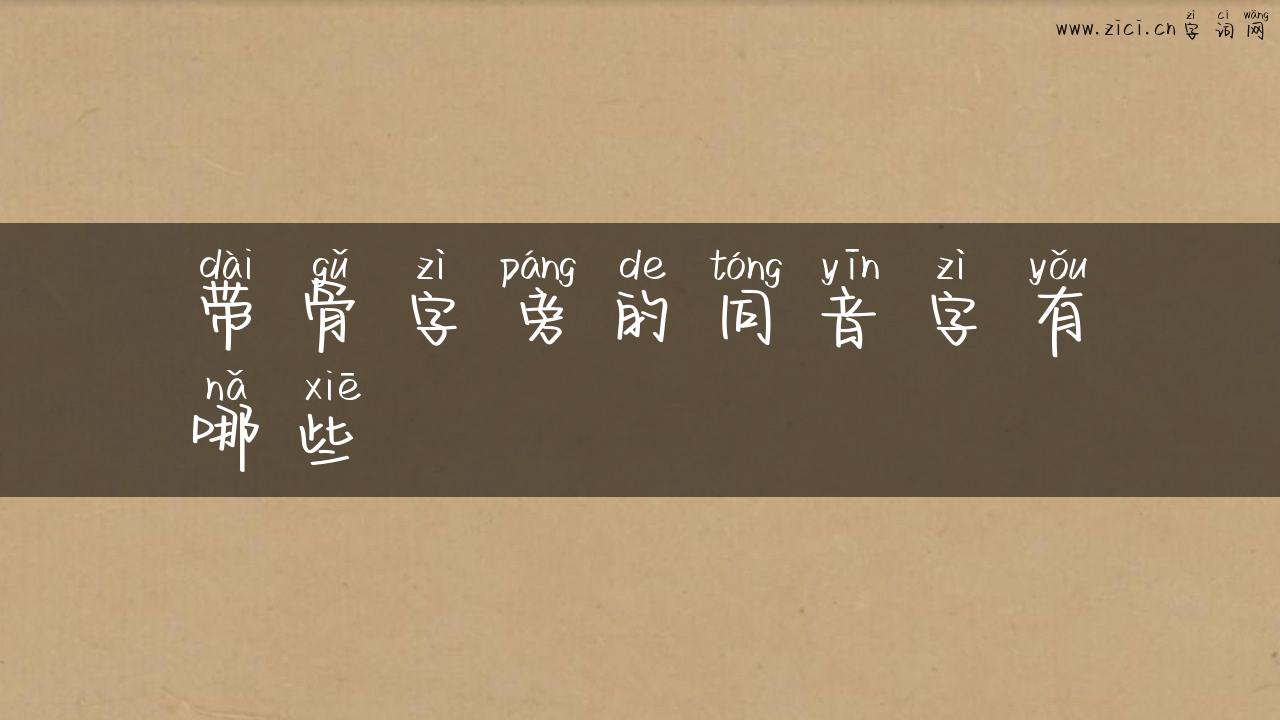 zì cí wǎng
www.zici.cn 字词网
dài gǔ zì páng de tóng yīn zì yǒu
带骨字旁的同音字有
nǎ xiē
哪些